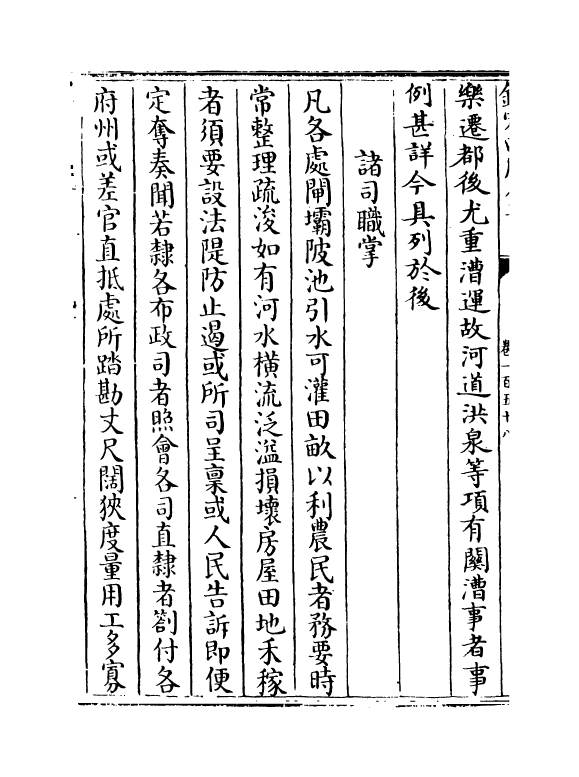 樂遷都後尤重漕運故河道洪泉等項有關漕事者事
例甚詳今具列於後
諸司職掌
凡各處閘壩陂池引水可灌田畝以利農民者務要時
常整理疏浚如有河水橫流泛溢損壞房屋田地禾稼
者須要設法隄防止遏或所司呈稟或人民告訴即便
定奪奏聞若隸各布政司者照會各司直隸者劄付各
府州或差官直抵處所踏勘丈尺闊狹度量用工多寡
卷一百五十八